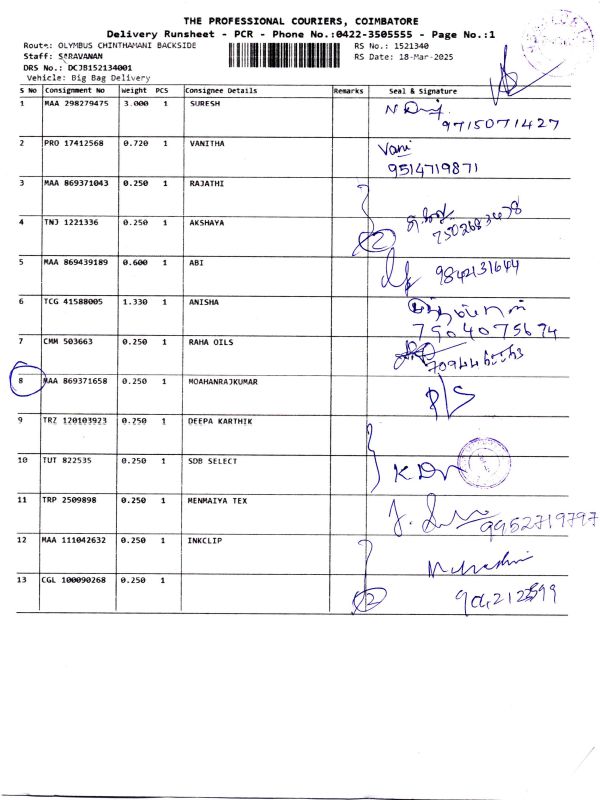 THE PROFESSIONAL COURIERS, COIMBATORE
Delivery Runsheet - PCR - Phone No.:0422-3505555 - Page No.:1
Route: OLYMBUS CHINTHAMANI BACKSIDE RS No.: 1521340
Staff: SARAVANAN RS Date: 18-Mar-2025
DRS No.: DCJB152134001
Vehicle: Big Bag Delivery
S No Consignment No Weight PCS Consignee Details Remarks Seal & Signature
1 MAA 298279475 3.000 1 SURESH
9715071427
2 PRO 17412568 0.720 1 VANITHA Vani
9514719871
3 MAA 869371043 0.250 1 RAJATHI
4 TNJ 1221336 0.250 1 AKSHAYA
7502683478
5 MAA 869439189 0.600 1 ABI 9842131644
6 TCG 41588005 1.330 1 ANISHA
7904075674
7 CMM 503663 0.250 1 RAHA OILS
8 MAA 869371658 0.250 1 MOAHANRAJKUMAR P/S
9 TRZ 120103923 0.250 1 DEEPA KARTHIK
10 TUT 822535 0.250 1 SDB SELECT
11 TRP 2509898 0.250 1 MENMAIYA TEX 9952719797
12 MAA 111042632 0.250 1 INKCLIP
13 CGL 100090268 0.250 1